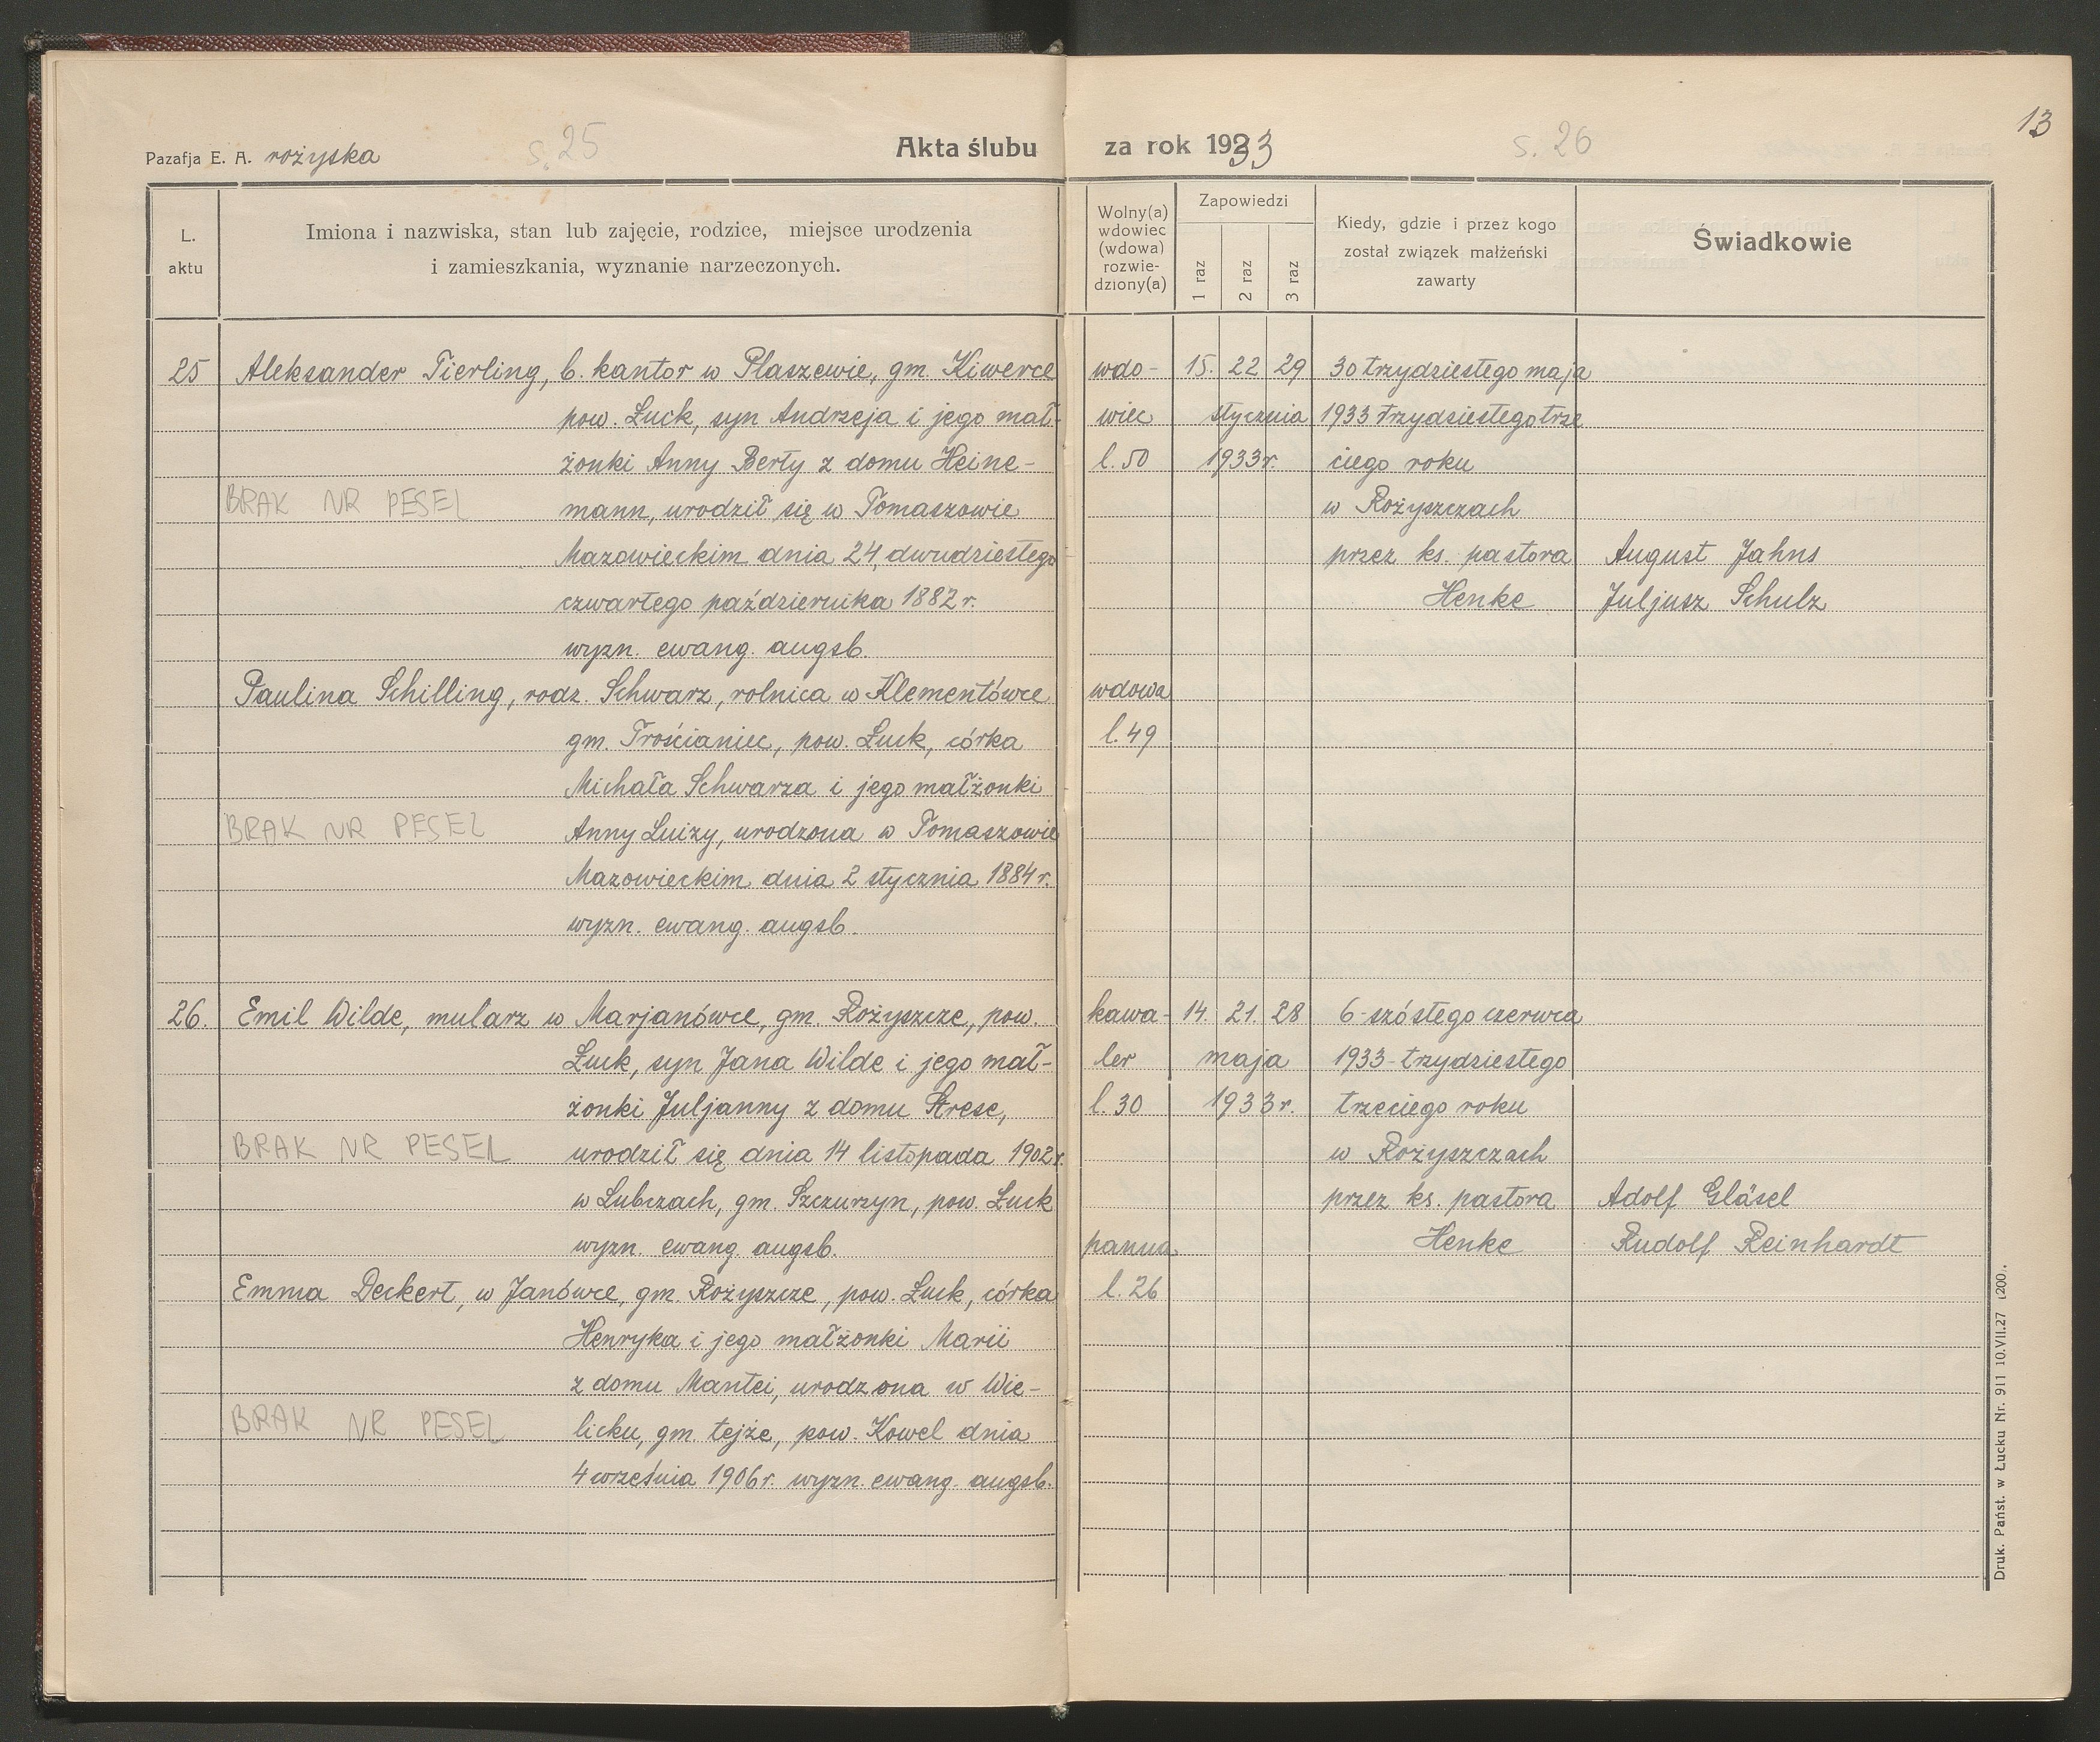 13
Pazafja E. A. rożyska
s. 25
Akta ślubu
za rok 1933
s. 26
L.
aktu
Imiona i nazwiska, stan lub zajęcie, rodzice, miejsce urodzenia
i zamieszkania, wyznanie narzeczonych.
Wolny(a)
wdowiec
(wdowa)
rozwie-
dziony(a)
Zapowiedzi
1 raz
2 raz
3 raz
Kiedy, gdzie i przez kogo
został związek małżeński
zawarty
Świadkowie
25 Aleksander Tierling, b. kantor w Płaszewie, gm. Kiwerce
pow. Łuck, syn Andrzeja i jego mał-
żonki Anny Berty z domu Heine-
BRAK NR PESEL
mann, urodził się w Tomaszowie
Mazowieckim dnia 24, dwudziestego
czwartego października 1882 r.
wyzn. ewang. augsb.
Paulina Schilling, rodz. Schwarz, rolnica w Klementówce
gm. Trościaniec, pow. Łuck, córka
Michała Schwarza i jego małżonki
BRAK NR PESEL
Anny Luizy, urodzona w Tomaszowie
Mazowieckim dnia 2 stycznia 1884 r.
wyzn. ewang. augsb.
wdo-
wiec
l. 50
15. 22 29
stycznia
1933 r.
30 trzydziestego maja
1933 trzydziestego trze
ciego roku
w Rożyszczach
przez ks. pastora
Henke
August Jahns
Juljusz Schulz
wdowa
l. 49
26. Emil Wilde, mularz w Marjanówce, gm. Rożyszcze, pow.
Łuck, syn Jana Wilde i jego mał-
żonki Juljanny z domu Strese,
BRAK NR PESEL
urodził się dnia 14 listopada 1902 r.
w Lubczach, gm. Szczurzyn, pow. Łuck
wyzn. ewang. augsb.
Emma Deckert, w Janówce, gm. Rożyszcze, pow. Łuck, córka
Henryka i jego małżonki Marii
z domu Mantei, urodzona w Wie-
BRAK NR PESEL
licku, gm. tejże, pow. Kowel dnia
4 września 1906 r. wyzn. ewang. augsb.
kawa-
ler
l. 30
14. 21. 28
maja
1933 r.
6-szóstego czerwca
1933-trzydziestego
trzeciego roku
w Rożyszczach
przez ks. pastora
Henke
Adolf Gläsel
Rudolf Reinhardt
panna
l. 26
Druk. Państ. w Łucku Nr. 911 10.VII.27